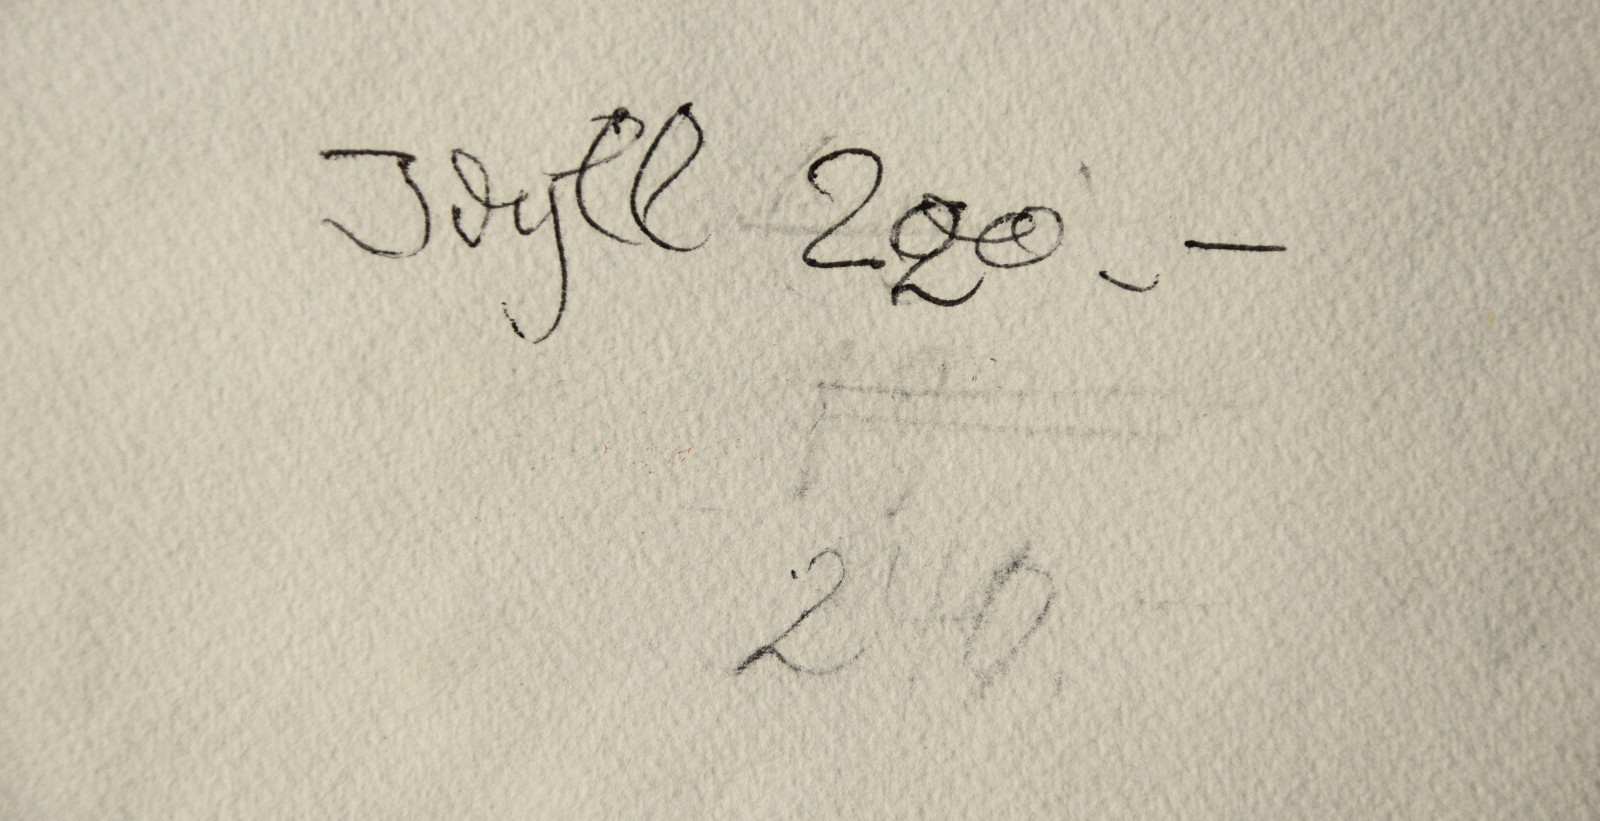 Idyll 220.-
240.-